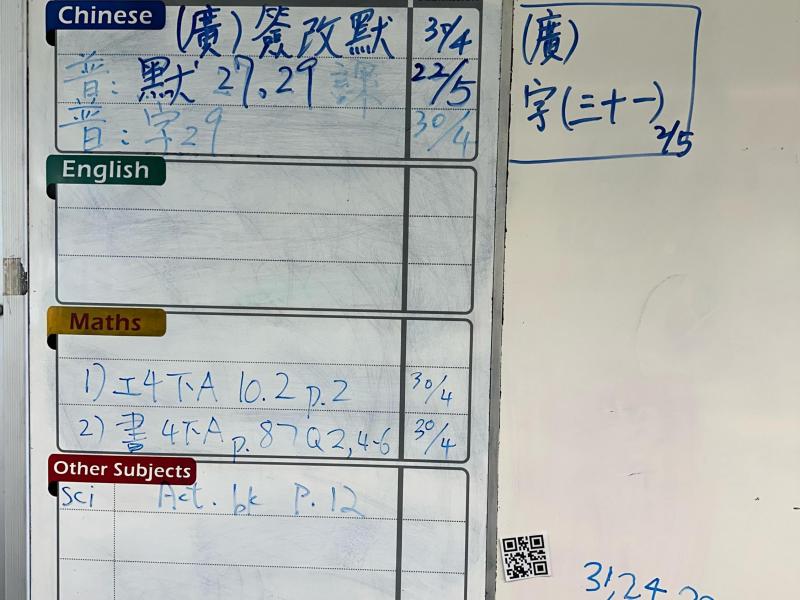 Chinese
(廣) 簽改默 30/4
普: 默 27, 29 課 22/5
普: 字 29 30/4
English
Maths
1) 工4下A 10.2 p.2 30/4
2) 書 4下A p.87 Q2,4-6 30/4
Other Subjects
Sci Act. bk P.12
(廣)
字(三十一)
2/5
31,24